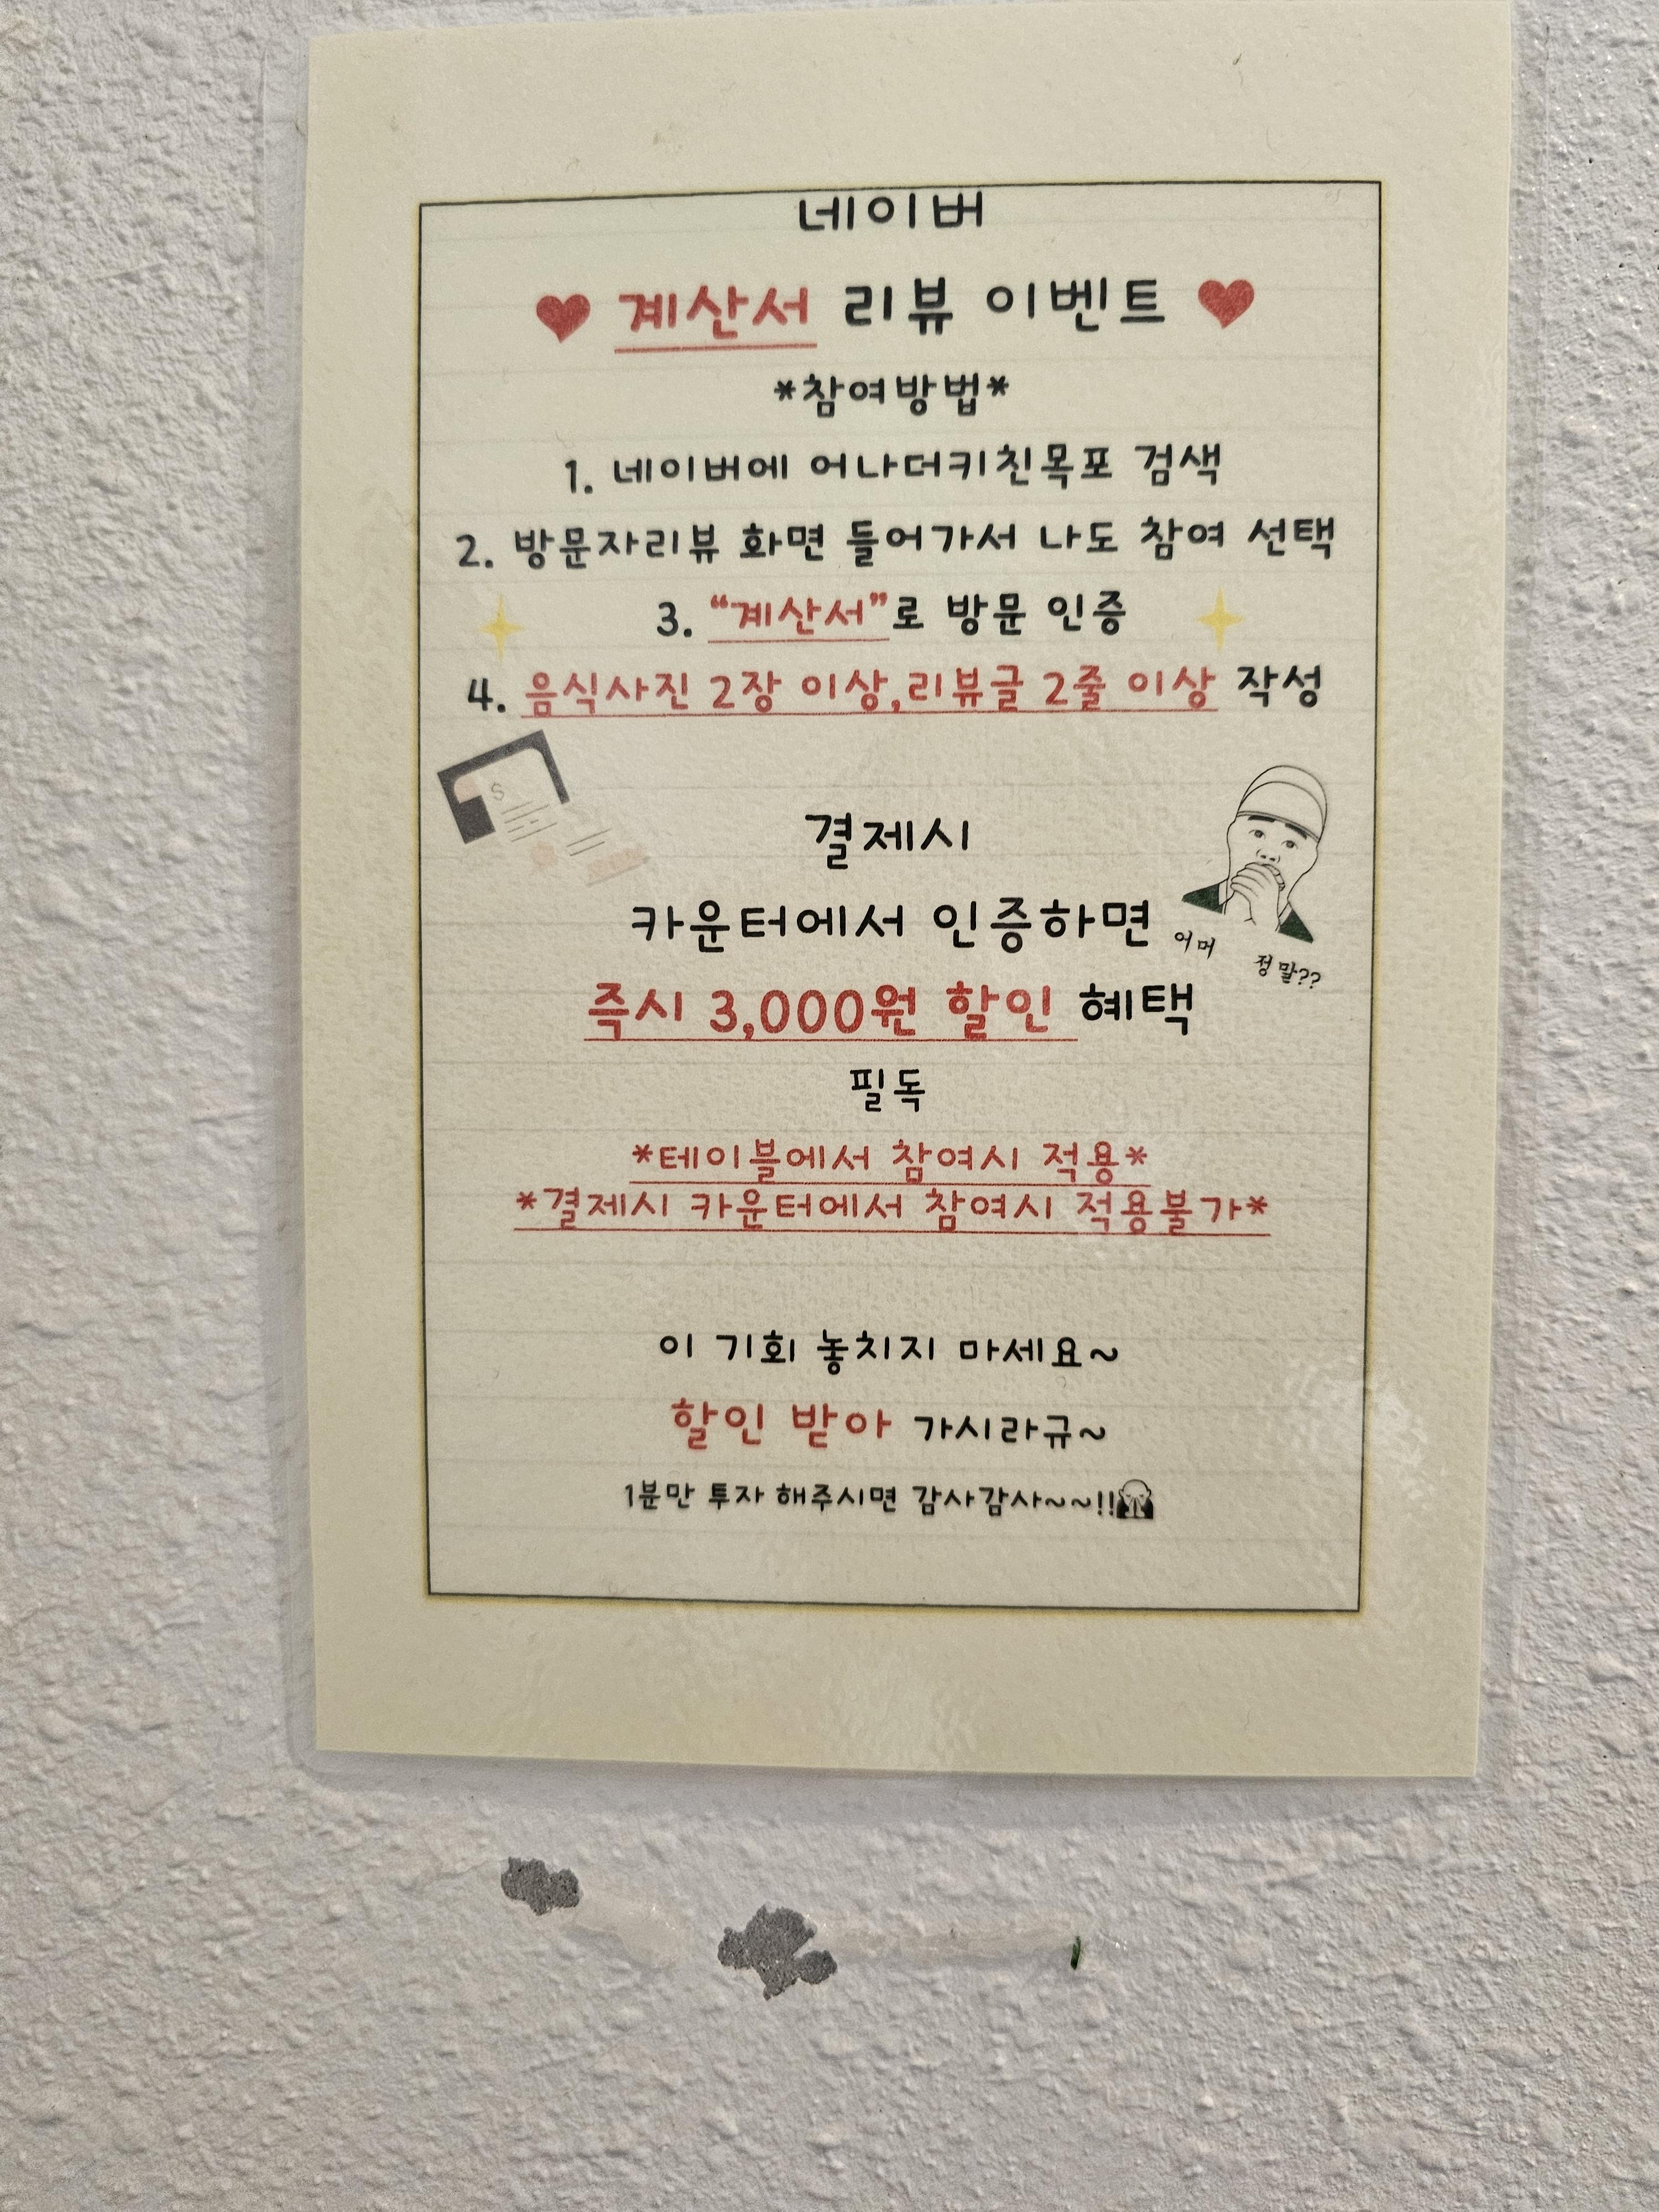 네이버
계산서 리뷰 이벤트
*참여방법*
1. 네이버에 어나더키친목포 검색
2. 방문자리뷰 화면 들어가서 나도 참여 선택
3. “계산서”로 방문 인증
4. 음식사진 2장 이상,리뷰글 2줄 이상 작성
$
결제시
카운터에서 인증하면
어머
정말??
즉시 3,000원 할인 혜택
필독
*테이블에서 참여시 적용*
*결제시 카운터에서 참여시 적용불가*
이 기회 놓치지 마세요~
할인 받아 가시라규~
1분만 투자 해주시면 감사감사~~!!